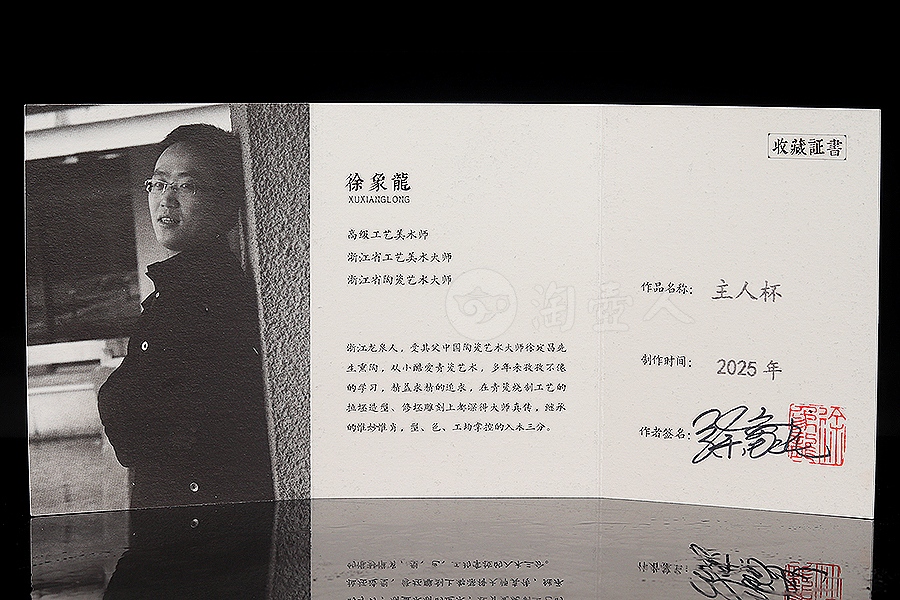 收藏証書
徐象龍
XUXIANGLONG
高级工艺美术师
浙江省工艺美术大师
浙江省陶瓷艺术大师
浙江龙泉人，受其父中国陶瓷艺术大师徐定昌先
生熏陶，从小酷爱青瓷艺术，多年来孜孜不倦
的学习，精益求精的追求，在青瓷烧制工艺的
拉坯造型、修坯雕刻上都深得大师真传，继承
的惟妙惟肖，型、色、工均掌控的入木三分。
作品名称： 主人杯
制作时间： 2025 年
作者签名：
淘壶人